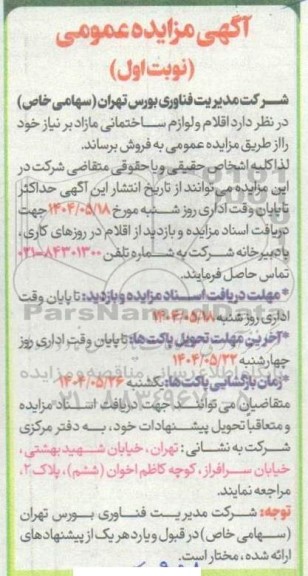 آگهی مزایده عمومی
(نوبت اول)
شرکت مدیریت فناوری بورس تهران (سهامی خاص)
در نظر دارد اقلام و لوازم ساختمانی مازاد بر نیاز خود
را از طریق مزایده عمومی به فروش برساند.
لذا کلیه اشخاص حقیقی و یا حقوقی متقاضی شرکت در
این مزایده می‌توانند از تاریخ انتشار این آگهی حداکثر
تا پایان وقت اداری روز شنبه مورخ ۱۴۰۴/۰۵/۱۸ جهت
دریافت اسناد مزایده و بازدید از اقلام در روزهای کاری،
با دبیرخانه شرکت به شماره تلفن ۸۴۳۰۱۳۰۰-۰۲۱
تماس حاصل فرمایند.
*مهلت دریافت اسناد مزایده و بازدید: تا پایان وقت
اداری روز شنبه ۱۴۰۴/۰۵/۱۸
*آخرین مهلت تحویل پاکت‌ها: تا پایان وقت اداری روز
چهارشنبه ۱۴۰۴/۰۵/۲۲
*زمان بازگشایی پاکت‌ها: یکشنبه ۱۴۰۴/۰۵/۲۶
متقاضیان می توانند جهت دریافت اسناد مزایده
و متعاقباً تحویل پیشنهادات خود، به دفتر مرکزی
شرکت به نشانی: تهران، خیابان شهید بهشتی،
خیابان سرافراز، کوچه کاظم اخوان (ششم)، پلاک ۲،
مراجعه نمایند.
توجه: شرکت مدیریت فناوری بورس تهران
(سهامی خاص) در قبول و یا رد هر یک از پیشنهادهای
ارائه شده، مختار است.